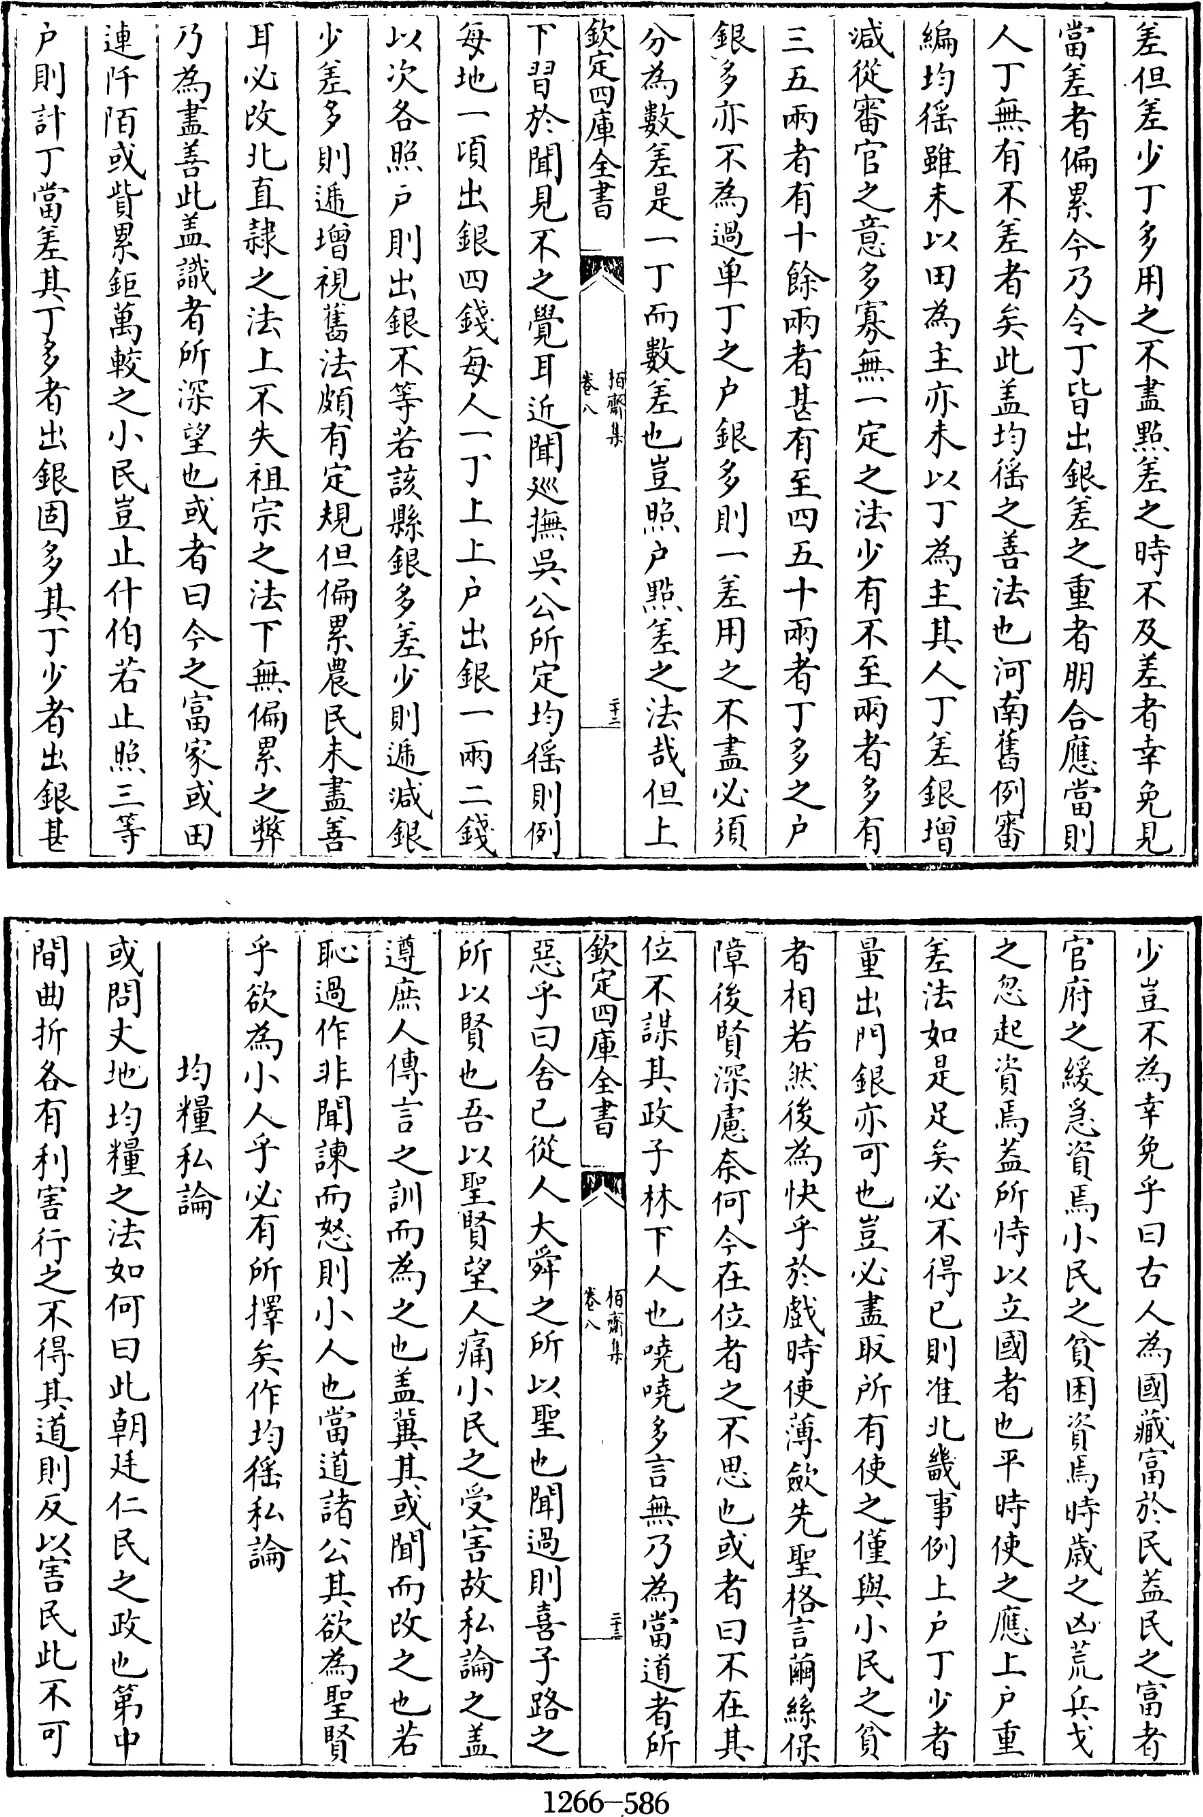 差但差少丁多用之不盡點差之時不及差者幸免見
當差者偏累今乃令丁皆出銀差之重者朋合應當則
人丁無有不差者矣此盖均徭之善法也河南舊例審
編均徭雖未以田為主亦未以丁為主其人丁差銀增
減從審官之意多寡無一定之法少有不至兩者多有
三五兩者有十餘兩者甚有至四五十兩者丁多之户
銀多亦不為過单丁之户銀多則一差用之不盡必須
分為數差是一丁而數差也豈照户點差之法哉但上
欽定四庫全書
栢齋集
卷八
二十二
下習於聞見不之覺耳近聞廵撫吳公所定均徭則例
每地一頃出銀四錢每人一丁上上户出銀一兩二錢
以次各照户則出銀不等若該縣銀多差少則遞減銀
少差多則遞增視舊法頗有定規但偏累農民未盡善
耳必改北直隷之法上不失祖宗之法下無偏累之弊
乃為盡善此盖識者所深望也或者曰今之富家或田
連阡陌或貲累鉅萬較之小民豈止什伯若止照三等
户則計丁當差其丁多者出銀固多其丁少者出銀甚
少豈不為幸免乎曰古人為國藏富於民葢民之富者
官府之緩急資焉小民之貧困資焉時歳之凶荒兵戈
之忽起資焉葢所恃以立國者也平時使之應上户重
差法如是足矣必不得已則准北畿事例上户丁少者
量出門銀亦可也豈必盡取所有使之僅與小民之貧
者相若然後為快乎於戲時使薄斂先聖格言繭絲保
障後賢深慮奈何今在位者之不思也或者曰不在其
位不謀其政子林下人也嘵嘵多言無乃為當道者所
欽定四庫全書
栢齋集
卷八
二十三
惡乎曰舍已從人大舜之所以聖也聞過則喜子路之
所以賢也吾以聖賢望人痛小民之受害故私論之盖
遵庶人傳言之訓而為之也盖冀其或聞而改之也若
恥過作非聞諫而怒則小人也當道諸公其欲為聖賢
乎欲為小人乎必有所擇矣作均徭私論
均糧私論
或問丈地均糧之法如何曰此朝廷仁民之政也第中
間曲折各有利害行之不得其道則反以害民此不可
1266—586